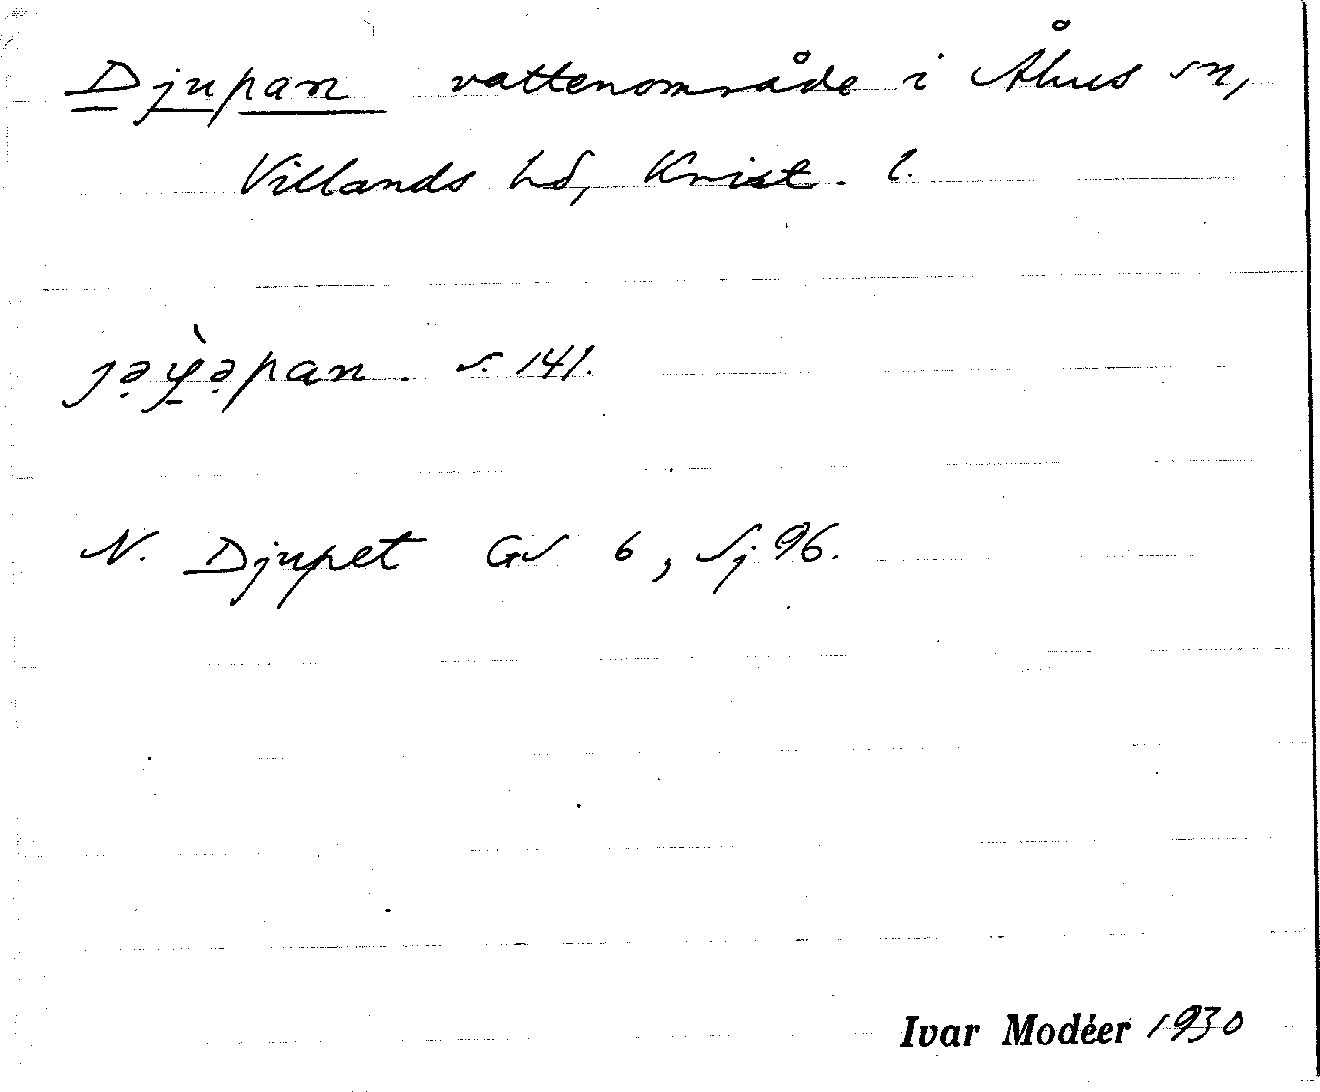 Djupan vattenområde i Åhus sn,
Villands hd, Krist. l.
jə̣ỳ̠ə̣pan. s. 141.
N. Djupet GS 6, Sj. 96.
Ivar Modéer 1930